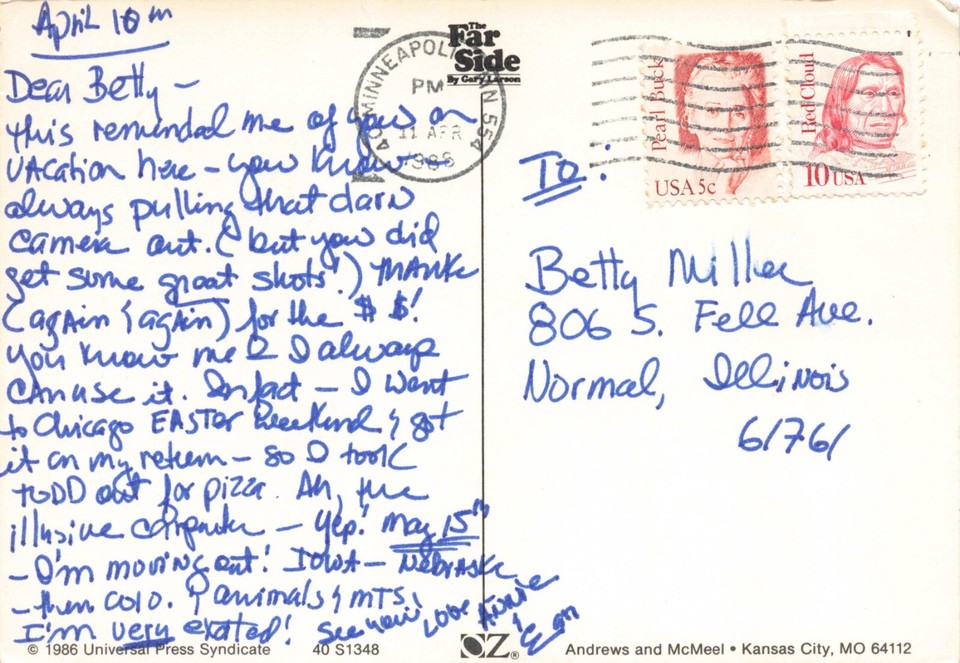 April 10th
Dear Betty –
this reminded me of you on
vacation here – you know
always pulling that darn
camera out. (but you did
get some great shots!) THANKS
(again & again) for the $ $!
You know me & I always
can use it. In fact – I went
to Chicago EASTER weekend & got
it on my return – so I took
TODD out for pizza. Ah, the
illusive computer – Yep! May 15th
– I'm moving out! IOWA – Nebraska
– then COLO. & animals & MTS.
I'm very excited! See you
Love Annie
&
© 1986 Universal Press Syndicate
40 S1348
The
Far
Side
By Gary Larson
MINNEAPOLIS MN 554
PM
11 APR
Pearl Buck
USA 5c
Red Cloud
10 USA
To:
Betty Miller
806 S. Fell Ave.
Normal, Illinois
61761
OZ®
Andrews and McMeel • Kansas City, MO 64112